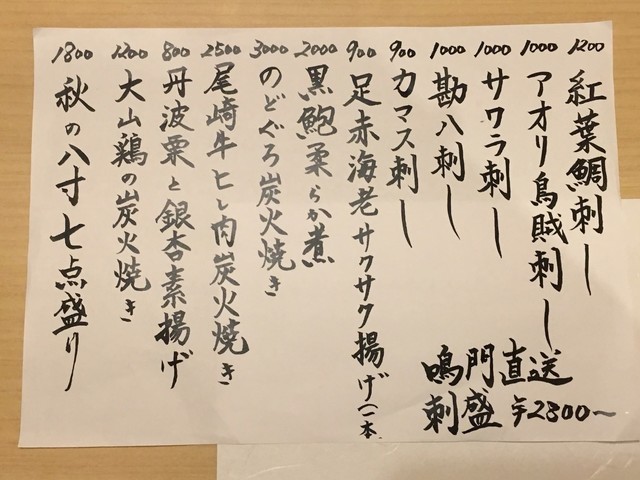 1200 紅葉鯛刺し
1000 アオリ烏賊刺し
1000 サワラ刺し
1000 勘八刺し
900 カマス刺し
900 足赤海老サクサク揚げ(一本
2000 黒鮑柔らか煮
3000 のどぐろ炭火焼き
2500 尾崎牛ヒレ肉炭火焼き
800 丹波栗と銀杏素揚げ
1200 大山鶏の炭火焼き
1800 秋の八寸七点盛り
鳴門直送
刺盛 〒2800〜